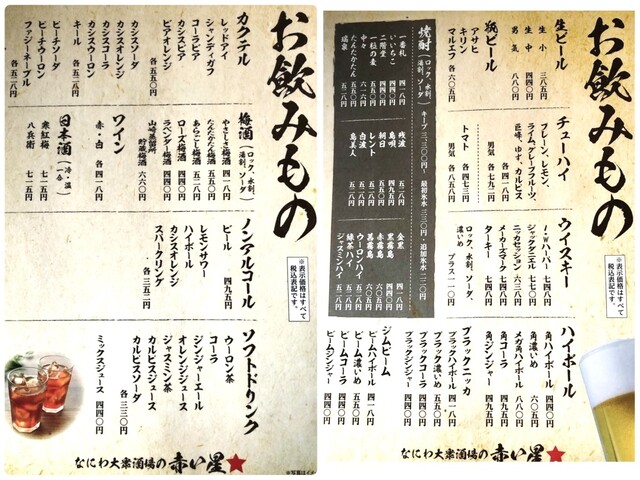 お飲みもの
※表示価格はすべて
税込表記です。
カクテル
レッドアイ
シャンディ・ガフ
カシスビア
コーラビア
ピアオレンジ
各五五〇円
カシスソーダ
カシスオレンジ
カシスコーラ
カシスウーロン
キール
各五二八円
ピーチソーダ
ピーチウーロン
ファジーネーブル
各五二八円
梅酒(ロック、水割、湯割、ソーダ)
やさしさ梅酒 四一八円
たんたかたん梅酒 五五〇円
あらごし梅酒 五二八円
ローズ梅酒 四四〇円
ラベンダー梅酒 四四〇円
山崎蒸留所
貯蔵梅酒 六六〇円
ワイン
赤・白 各四一八円
日本酒(冷、温 一合)
寒紅梅 七一五円
八兵衛 七一五円
ノンアルコール
ビール 四九五円
レモンサワー
ハイボール
カシスオレンジ
スパークリング
各三五二円
ソフトドリンク
ウーロン茶
コーラ
ジンジャーエール
オレンジジュース
ジャスミン茶
カルピスジュース
カルピスソーダ
各三三〇円
ミックスジュース 四四〇円
なにわ大衆酒場の赤い星★
お飲みもの
※表示価格はすべて
税込表記です。
生ビール
生小 三八五円
生中 四八四円
男気 八八〇円
瓶ビール
アサヒ
キリン
マルエフ
各六〇五円
チューハイ
プレーン、レモン、
ライム、グレープフルーツ、
巨峰、ゆず、カルピス
各四一八円
男気 各七九二円
トマト 四八四円
男気 各八五八円
ウイスキー
I・W・ハーパー 七四八円
ジャックダニエル 七七〇円
ニッカセッション 六三八円
メーカーズマーク 七四八円
ターキー 七四八円
ロック、水割、ソーダ、
濃いめ プラス一一〇円
ハイボール
角ハイボール 四四〇円
角濃いめ 六〇五円
メガ角ハイボール 八八〇円
角コーラ 四九五円
角ジンジャー 四九五円
ブラックニッカ
ブラックハイボール 四一八円
ブラック濃いめ 五五〇円
ブラックコーラ 四四〇円
ブラックジンジャー 四四〇円
ジムビーム
ビームハイボール 四一八円
ビーム濃いめ 五五〇円
ビームコーラ 四四〇円
ビームジンジャー 四四〇円
焼酎(ロック、水割、湯割、ソーダ) キープ三三〇〇円〜 最初氷水三三〇円・追加氷水二二〇円
一番札 四一八円
いいちこ 四四〇円
二階堂 四四〇円
一粒の麦 五五〇円
中々 六一六円
たんたかたん 五五〇円
瑞泉 五二八円
残波 五二八円
島唄 四九五円
朝日 五二八円
レント 五五〇円
白波 四一八円
島美人 五二八円
金黒 四一八円
黒霧島 四四〇円
赤霧島 六〇五円
茜霧島 六〇五円
ウーロンハイ 四一八円
緑茶ハイ 五二八円
ジャスミンハイ 五二八円
なにわ大衆酒場の赤い星★